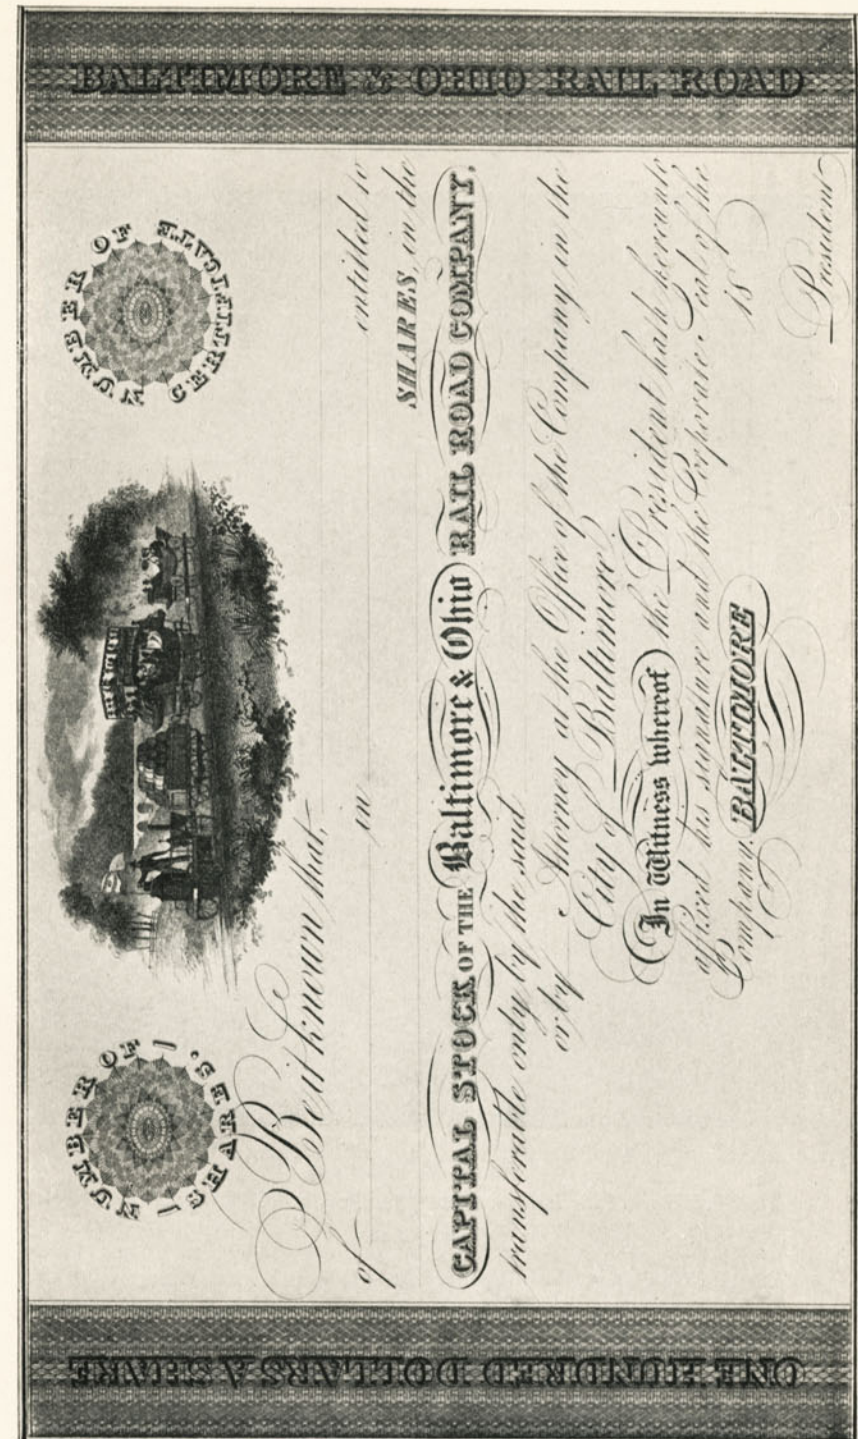 ONE HUNDRED DOLLARS A SHARE
NUMBER OF SHARES.
NUMBER OF CERTIFICATE
BALTIMORE & OHIO RAIL ROAD
Be it known that,
of in entitled to
SHARES, in the
CAPITAL STOCK OF THE Baltimore & Ohio RAIL ROAD COMPANY,
transferable only by the said
or by Attorney at the Office of the Company in the
City of Baltimore
In Witness whereof the President hath hereunto
affixed his signature and the Corporate Seal of the
Company. BALTIMORE 18
President